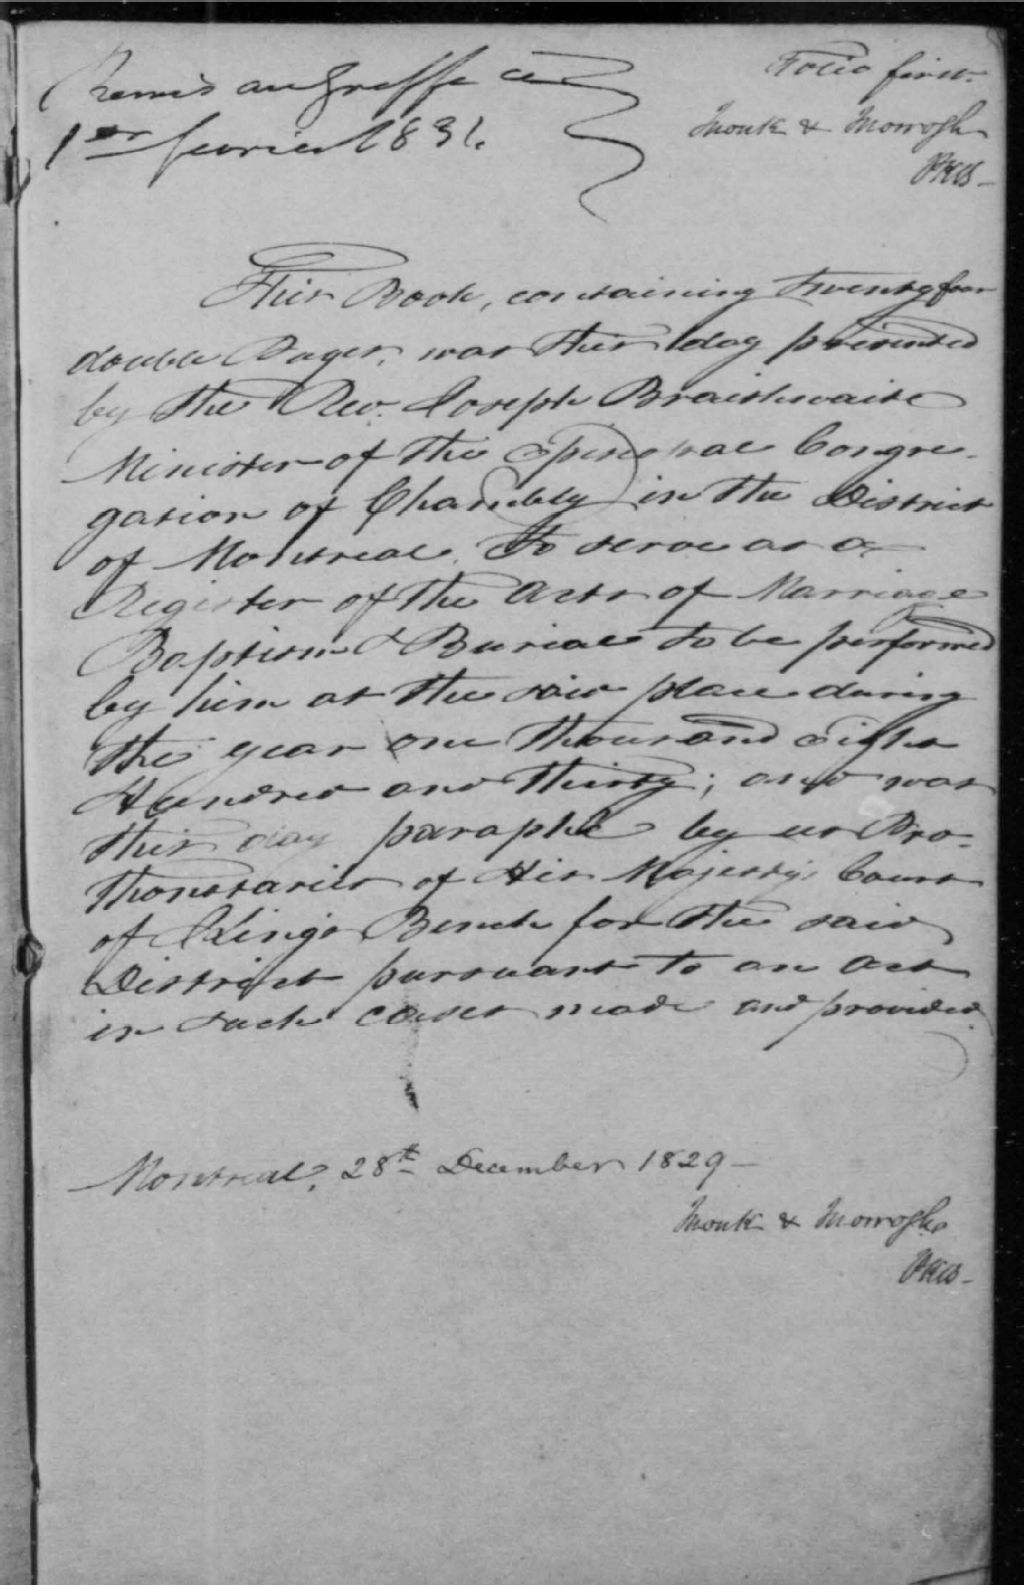 Remis au Greffe ce
1er fevrier 1831.
Folio first.
Monk & Morrogh
PKB
This Book, containing Twenty four
double Pages, was this day presented
by the Rev. Joseph Braithwaite
Minister of the Episcopal Congre-
gation of Chambly in the District
of Montreal, To serve as a
Register of the Acts of Marriage
Baptism & Burial to be performed
by him at the said place during
the year one thousand Eight
Hundred and Thirty; and was
this day paraphé by us Pro-
thonotaries of His Majesty's Court
of King's Bench for the said
District pursuant to an Act
in such cases made and provided.
Montreal, 28th December 1829 -
Monk & Morrogh
PKB